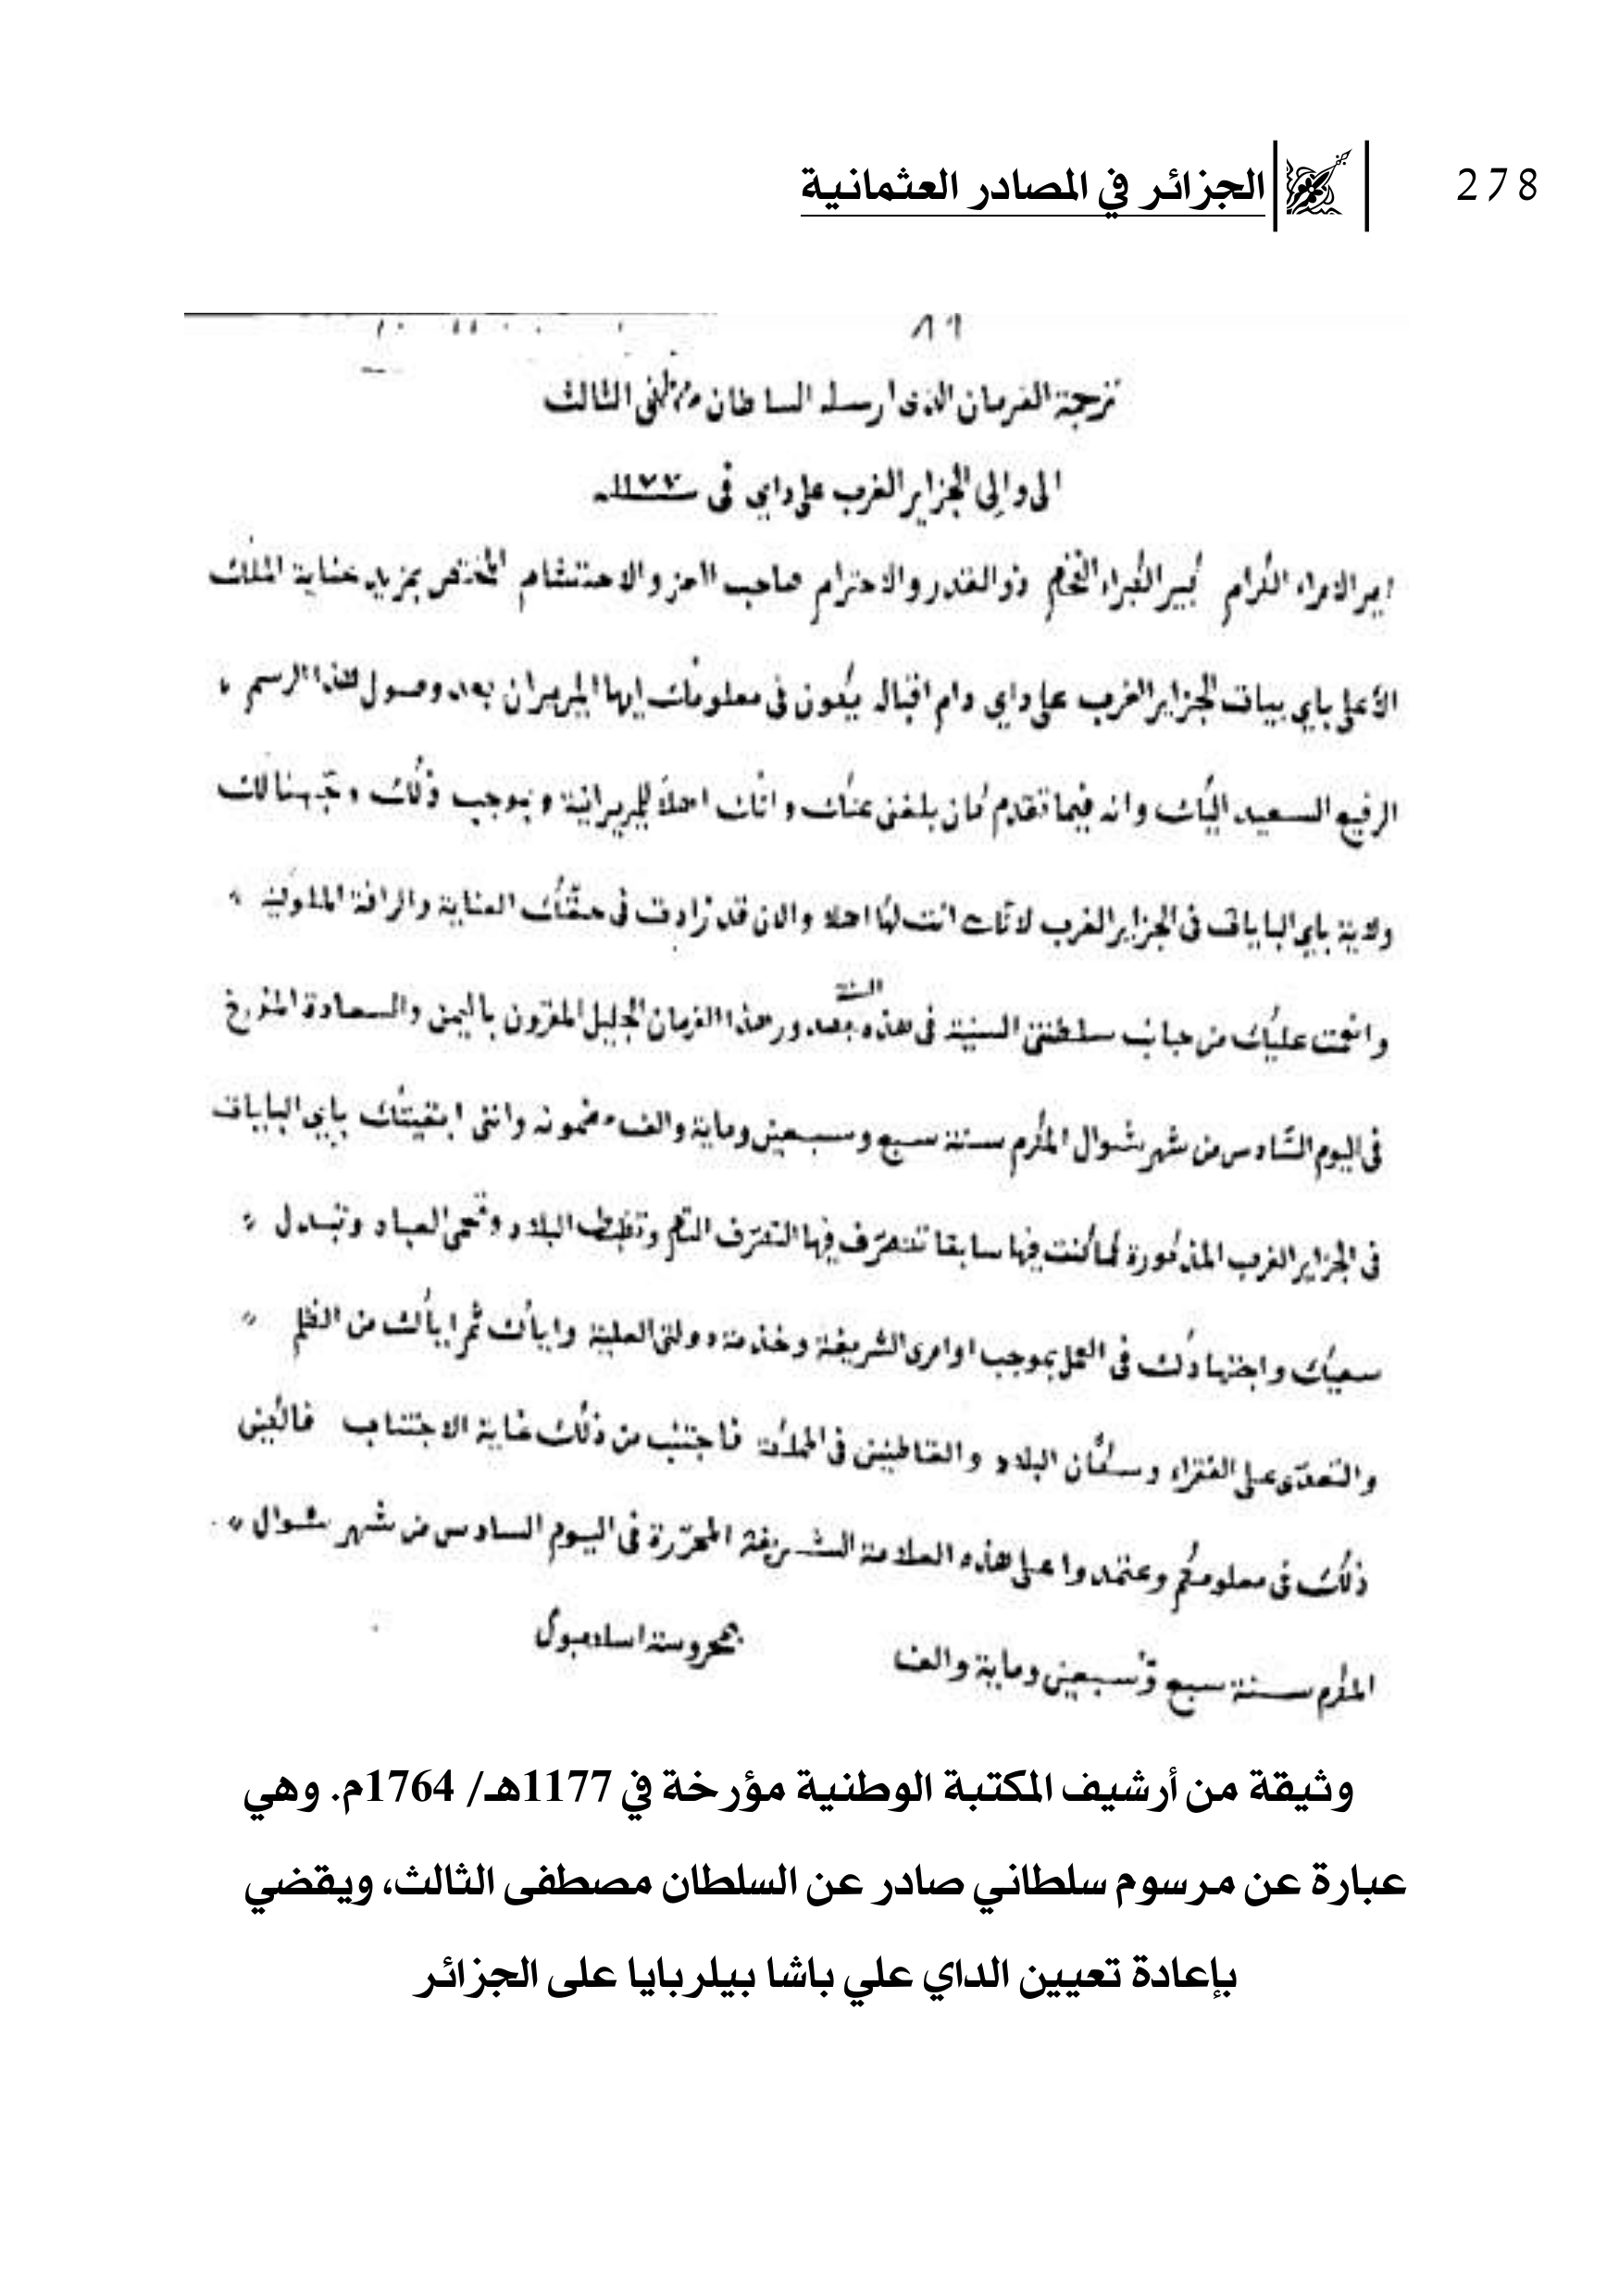 278
الجزائر في المصادر العثمانية
ترجمة الفرمان الذى ارسله السلطان مصطفى الثالث
الى والى الجزاير الغرب على داي فى سنة ١١٧٧
امير الامراء الكرام كبير الكبراء الفخام ذو القدر والاحترام صاحب العز والاحتشام المختص بمزيد عناية الملك
الأعلى باي بيات الجزاير الغرب على داي دام اقباله يكون فى معلومك ايها الميرميران بعد وصول هذا الرسم
الرفيع السعيد اليك وانه فيما تقدم كان بلغنى عنك وانك اهلا للميريرانية وبموجب ذلك وجهنا لك
ولاية باي البايات فى الجزاير الغرب لانك انت لها اهلا والان قد زادت فى حقك العناية والرافة الملوكية
وانعمت عليك من جانب سلطنتى السنية فى هذه السنة بعد ور هذا الفرمان الجليل المقرون باليمن والسعادة المؤرخ
فى اليوم السادس من شهر شوال المكرم سنة سبع وسبعين وماية والف مضمونه واننى ابقيتك باي البايات
فى الجزاير الغرب المذكورة كما كنت فيها سابقا تتصرف فيها التصرف التام وتظبط البلاد وتحمى العباد وتبدل
سعيك واجتهادك فى العمل بموجب اوامرى الشريفة وخذمة دولتى العلية واياك ثم اياك من الظلم
والتعدى على الفقراء وسكان البلاد والقاطنين فى المملكة فاجتنب من ذلك غاية الاجتناب فاليكن
ذلك فى معلومكم وعتمدوا على هذه العلامة الشريفة المحررة فى اليوم السادس من شهر شوال
المكرم سنة سبع وسبعين وماية والف بمحروسة اسلامبول
وثيقة من أرشيف المكتبة الوطنية مؤرخة في 1177هـ/ 1764م. وهي
عبارة عن مرسوم سلطاني صادر عن السلطان مصطفى الثالث، ويقضي
بإعادة تعيين الداي علي باشا بيلربايا على الجزائر